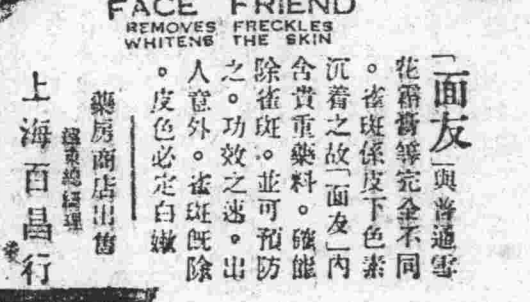 FACE FRIEND
REMOVES FRECKLES
WHITENS THE SKIN
「面友」與普通雪
花霜膏等完全不同
。雀斑係皮下色素
沉着之故「面友」內
含貴重藥料。確能
除雀斑。並可預防
之。功效之速。出
人意外。雀斑旣除
。皮色必定白嫩
藥房商店出售
遠東總經理
上海百昌行